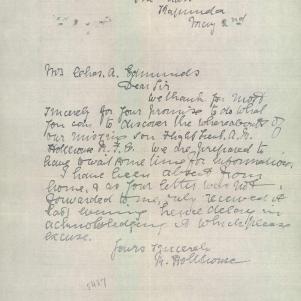 Kapunda
May 2nd
Mr Chas. A. Edmunds
Dear Sir
We thank you most
sincerely for your promise to do what
you can to discover the whereabouts of
our missing son Flight Lieut. A. W.
Holthouse R.F.C. We are prepared to
have to wait some time for information.
I have been absent from
home, & as your letter was not
forwarded to me, only received it
last evening hence delay in
acknowledging it which please
excuse.
Yours sincerely
Holthouse